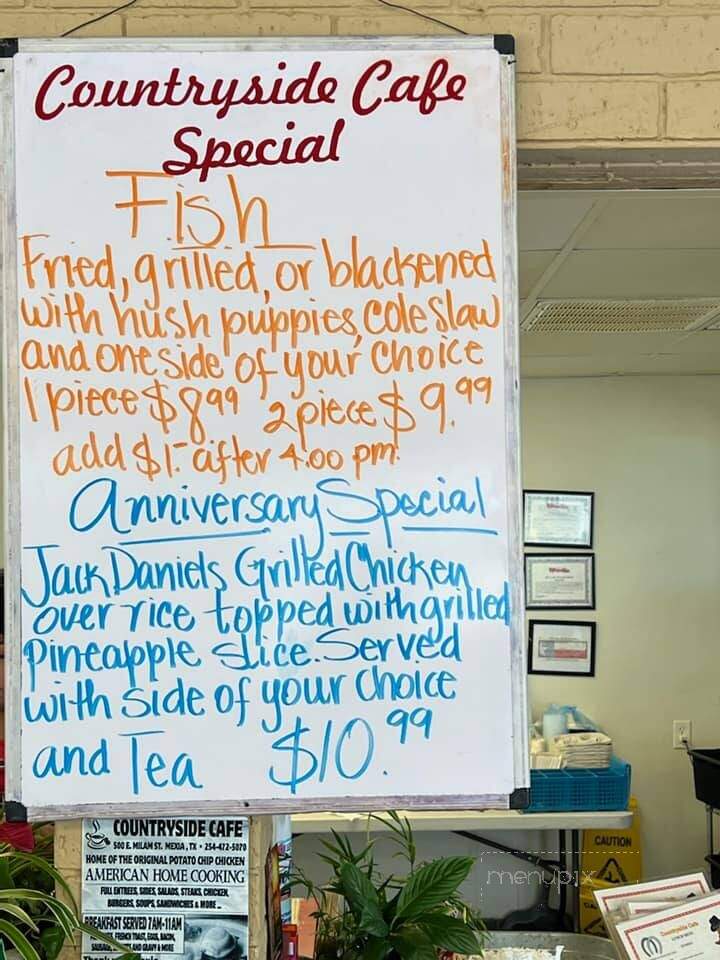 Countryside Cafe
Special
Fish
Fried, grilled, or blackened
with hush puppies, cole slaw
and one side of your choice
1 piece $8.99 2 piece $9.99
add $1- after 4:00 pm
Anniversary Special
Jack Daniels Grilled Chicken
over rice topped with grilled
Pineapple slice. Served
with side of your choice
and Tea $10.99
COUNTRYSIDE CAFE
500 E. MILAM ST. MEXIA, TX • 254-472-5070
HOME OF THE ORIGINAL POTATO CHIP CHICKEN
AMERICAN HOME COOKING
FULL ENTREES, SIDES, SALADS, STEAKS, CHICKEN,
BURGERS, SOUPS, SANDWICHES & MORE...
BREAKFAST SERVED 7AM-11AM
FRENCH TOAST, EGGS, BACON,
AND GRAVY & MORE
CAUTION
menupix